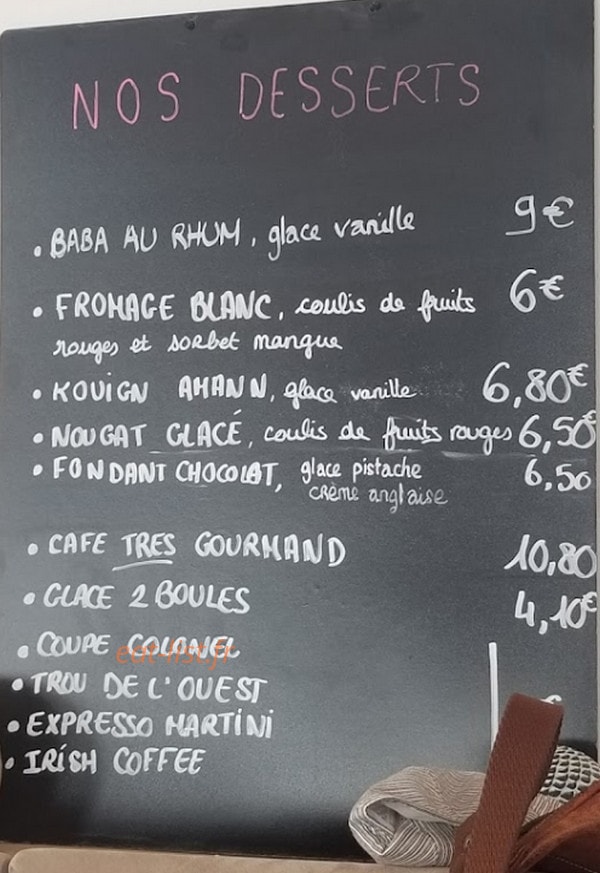 NOS DESSERTS
• BABA AU RHUM, glace vanille 9€
• FROMAGE BLANC, coulis de fruits 6€
rouges et sorbet mangue
• KOUIGN AMANN, glace vanille 6,80€
• NOUGAT GLACÉ, coulis de fruits rouges 6,50€
• FONDANT CHOCOLAT, glace pistache 6,50
crème anglaise
• CAFE TRES GOURMAND 10,80
• GLACE 2 BOULES 4,10€
• COUPE COLONEL
eat-list.fr
• TROU DE L'OUEST
• EXPRESSO MARTINI
• IRISH COFFEE